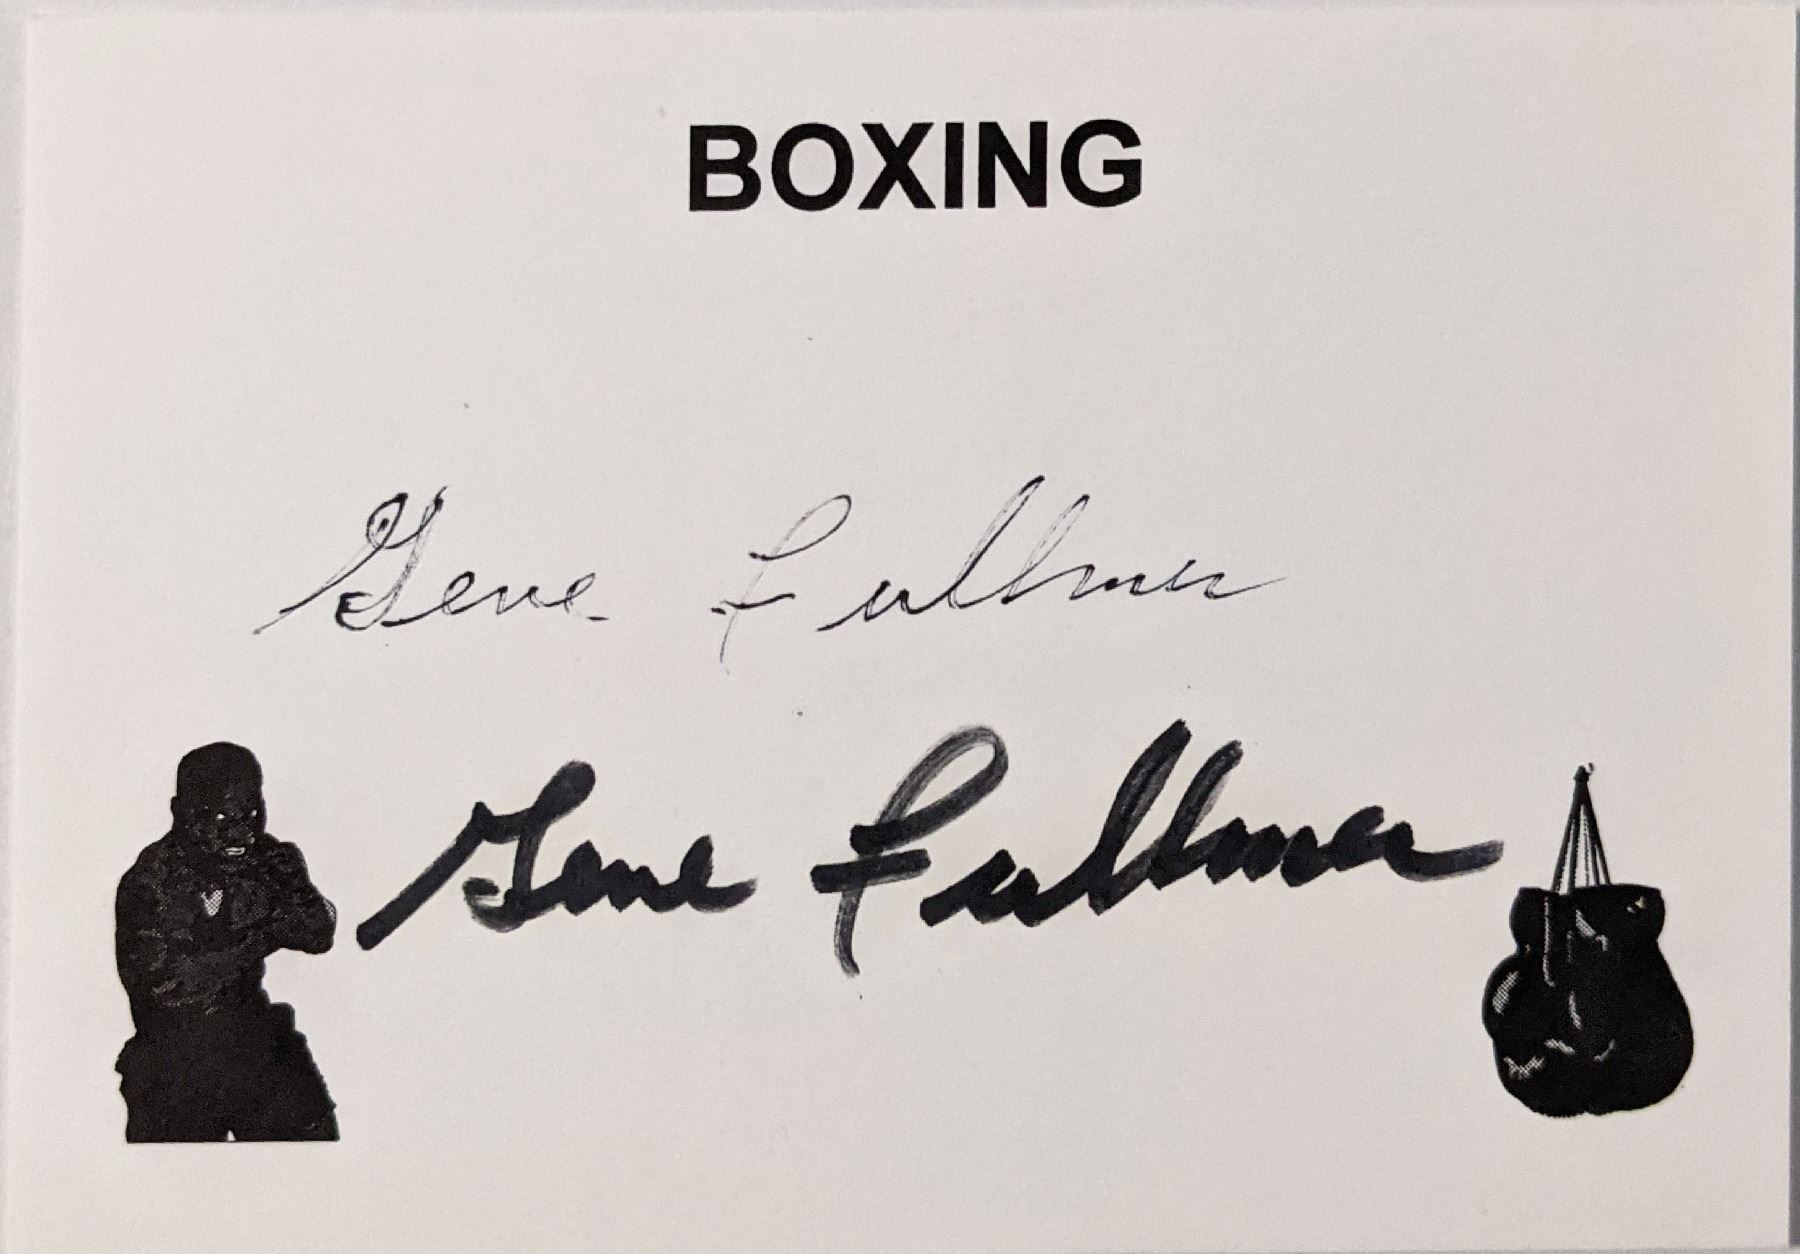 BOXING
Gene Fullmer
Gene Fullmer